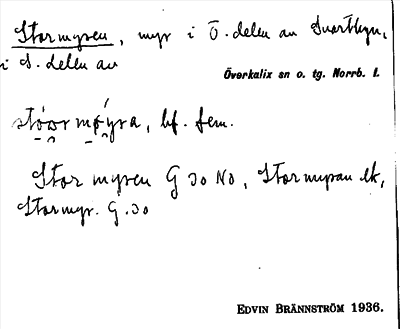 Stormyren, myr i Ö. delen av Svartbyn,
i S. delen av
Överkalix sn o. tg. Norrb. l.
stóor mǿyra, bf. fem.
Stor myren G 30 No, Stormyran Ek,
Stormyr. G. 30
EDVIN BRÄNNSTRÖM 1936.